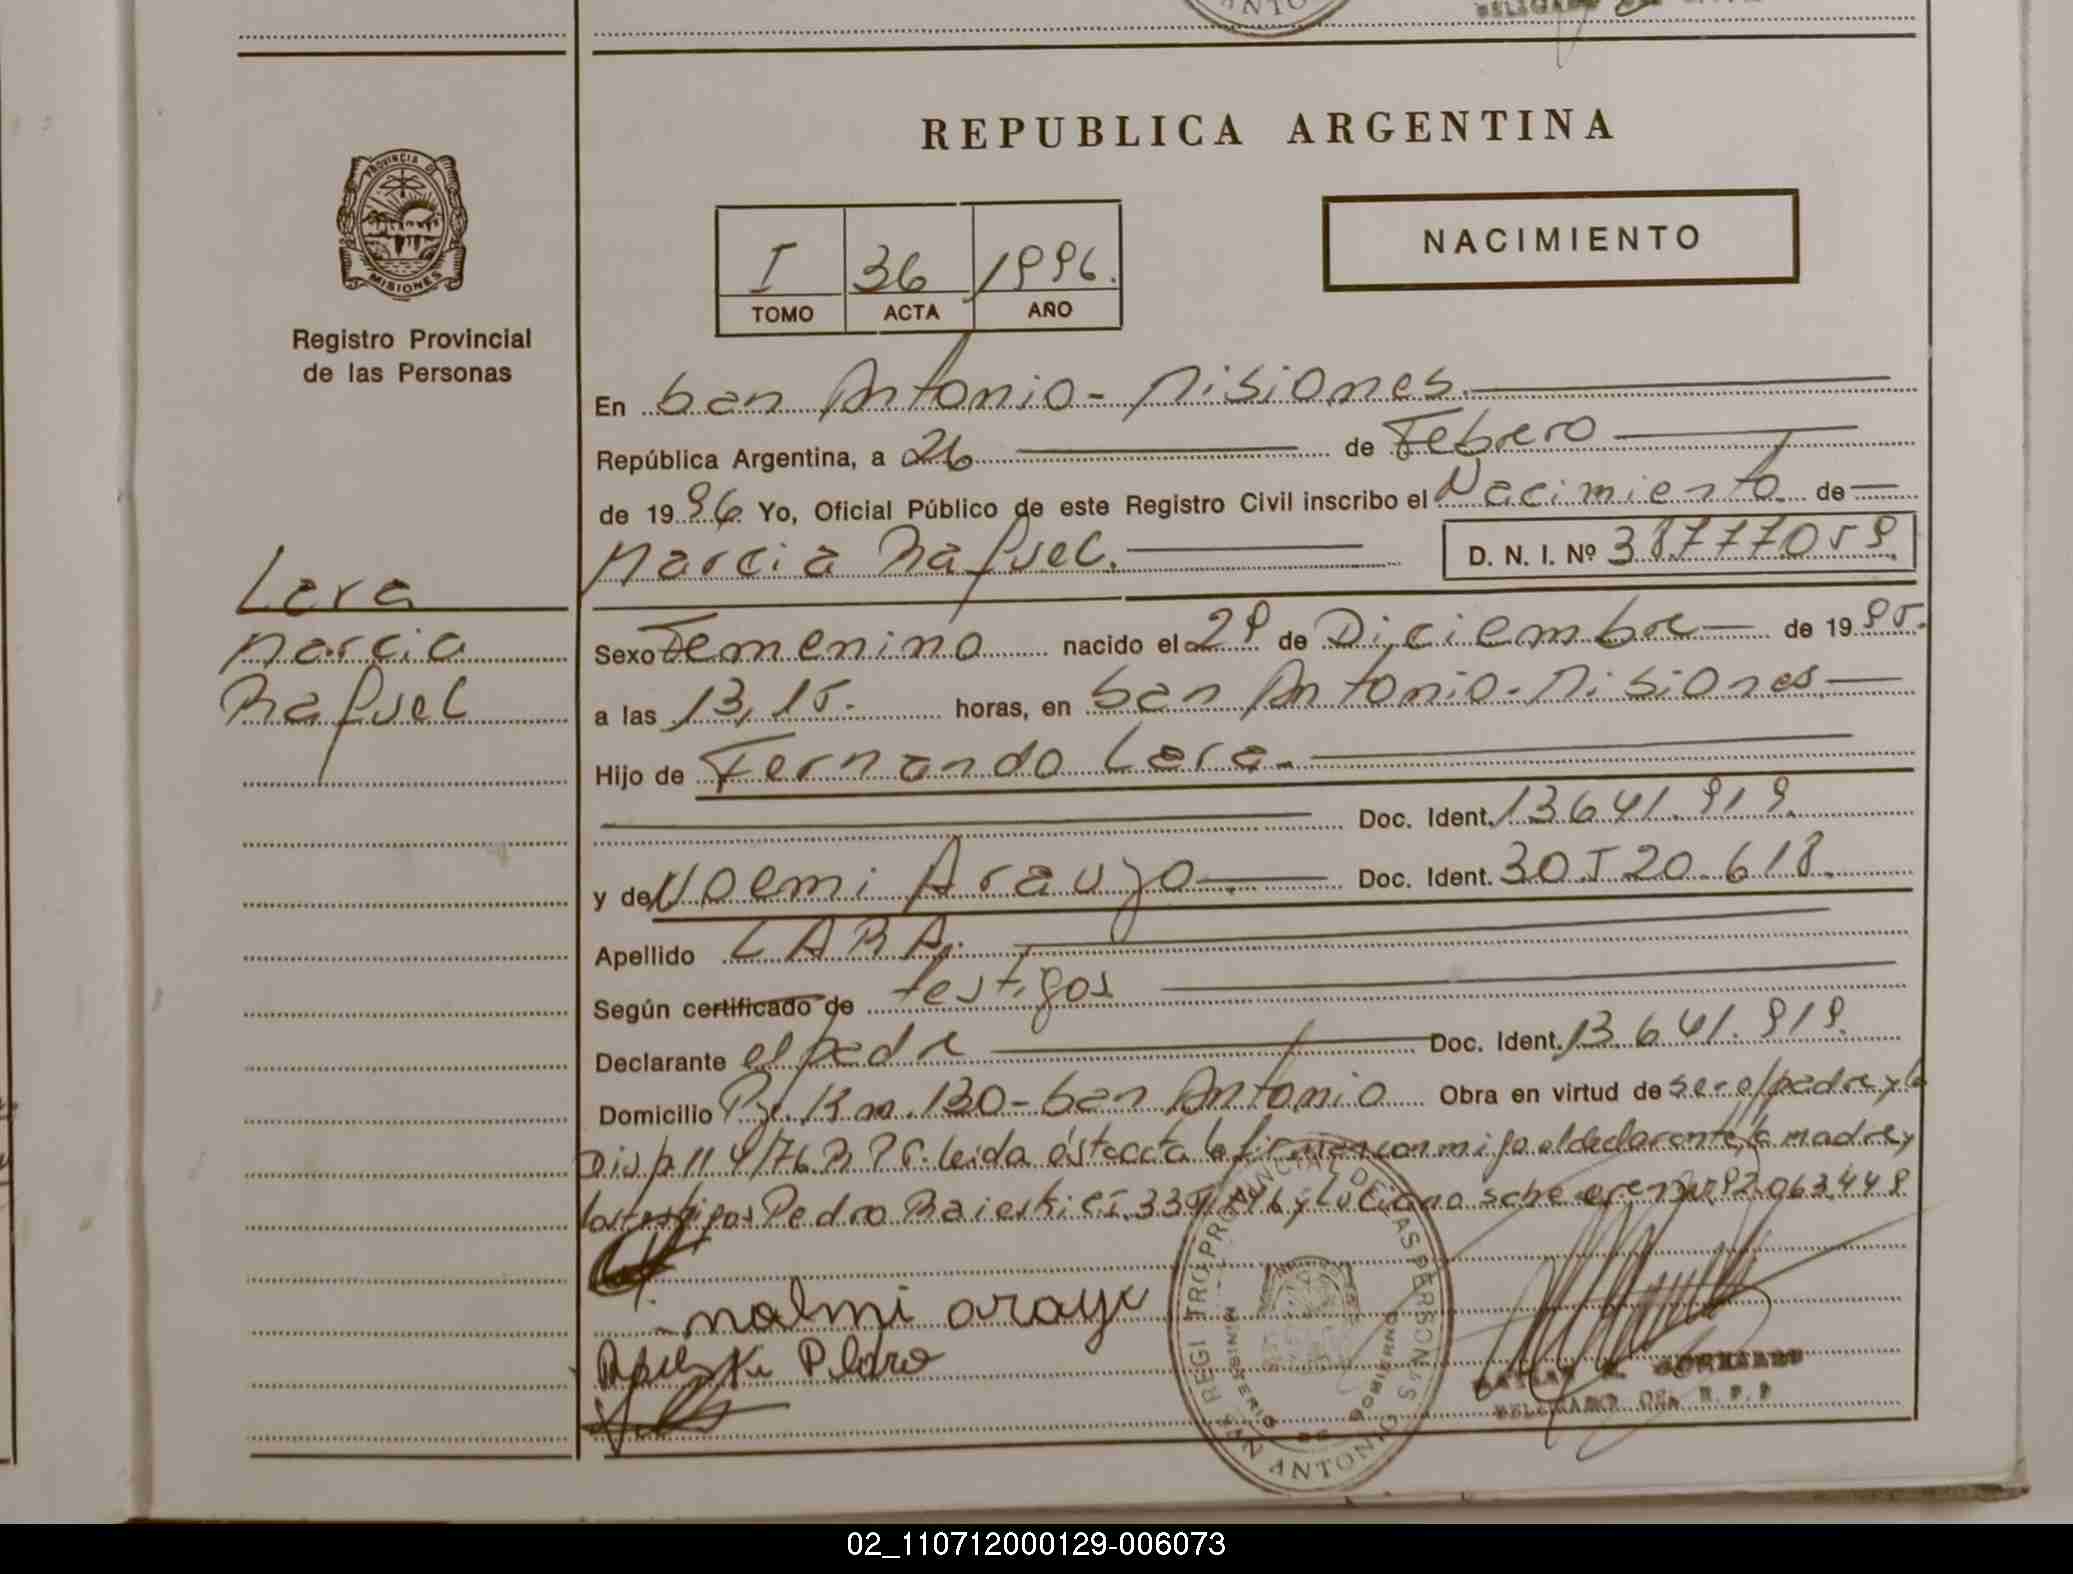 REPUBLICA ARGENTINA
PROVINCIA DE
MISIONES
Registro Provincial
de las Personas
I 36 1996.
TOMO ACTA AÑO
NACIMIENTO
En San Antonio - Misiones.
República Argentina, a 26 de Febrero
de 1996 Yo, Oficial Público de este Registro Civil inscribo el Nacimiento de
Marcia Raquel. D. N. I. Nº 38777059
Lara
Marcia
Raquel
Sexo Femenino nacido el 29 de Diciembre de 1995.
a las 13,15. horas, en San Antonio - Misiones
Hijo de Fernando Lara.
Doc. Ident. 13.641.919.
y de Noemi Araujo. Doc. Ident. 30.520.618.
Apellido LARA.
Según certificado de testigos
Declarante el padre Doc. Ident. 13.641.919.
Domicilio Pje. Km. 130 - San Antonio Obra en virtud de ser el padre y la
Disp. 114/76 R.P.P. leida ésta acta la firman conmigo el declarante, la madre y
los testigos Pedro Raieski C.I. y Luciano 92.063.449
noemi araujo
Pedro
REGISTRO PROVINCIAL DE LAS PERSONAS
MINISTERIO DE GOBIERNO
SAN ANTONIO
DELEGADO R.P.P
02_110712000129-006073